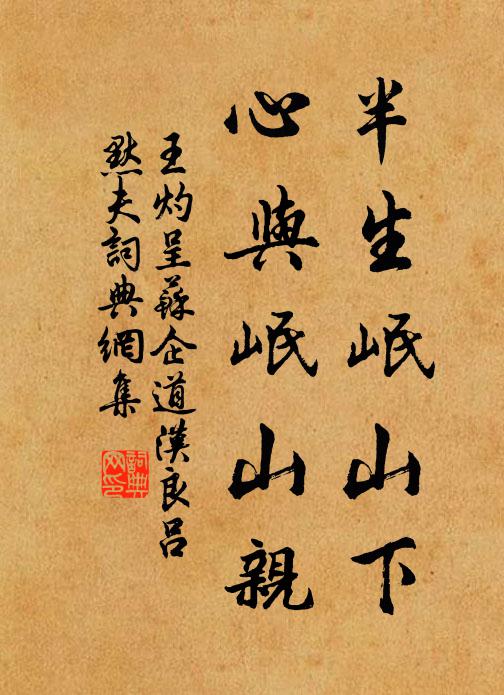 半生岷山下
心與岷山親
王灼呈蘇企道漢良呂
默夫詞典網集
詞典网印